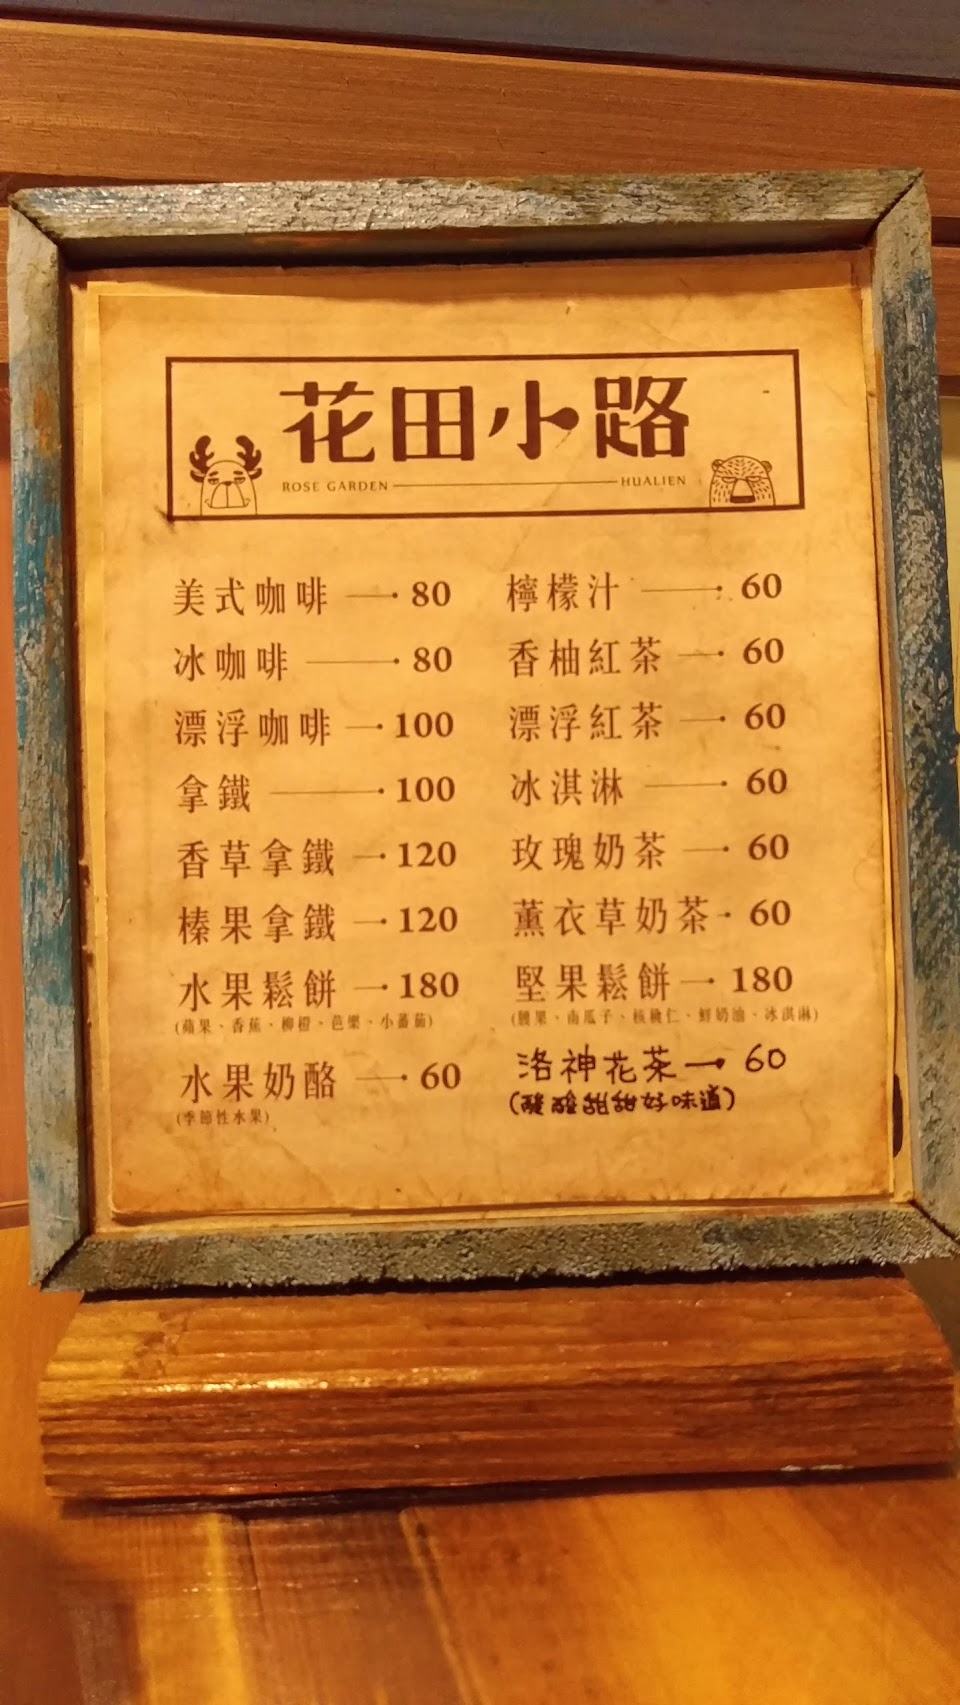 花田小路
ROSE GARDEN HUALIEN
美式咖啡 80
冰咖啡 80
漂浮咖啡 100
拿鐵 100
香草拿鐵 120
榛果拿鐵 120
水果鬆餅 180
(蘋果、香蕉、柳橙、芭樂、小蕃茄)
水果奶酪 60
(季節性水果)
檸檬汁 60
香柚紅茶 60
漂浮紅茶 60
冰淇淋 60
玫瑰奶茶 60
薰衣草奶茶 60
堅果鬆餅 180
(腰果、南瓜子、核桃仁、鮮奶油、冰淇淋)
洛神花茶→60
(酸酸甜甜好味道)